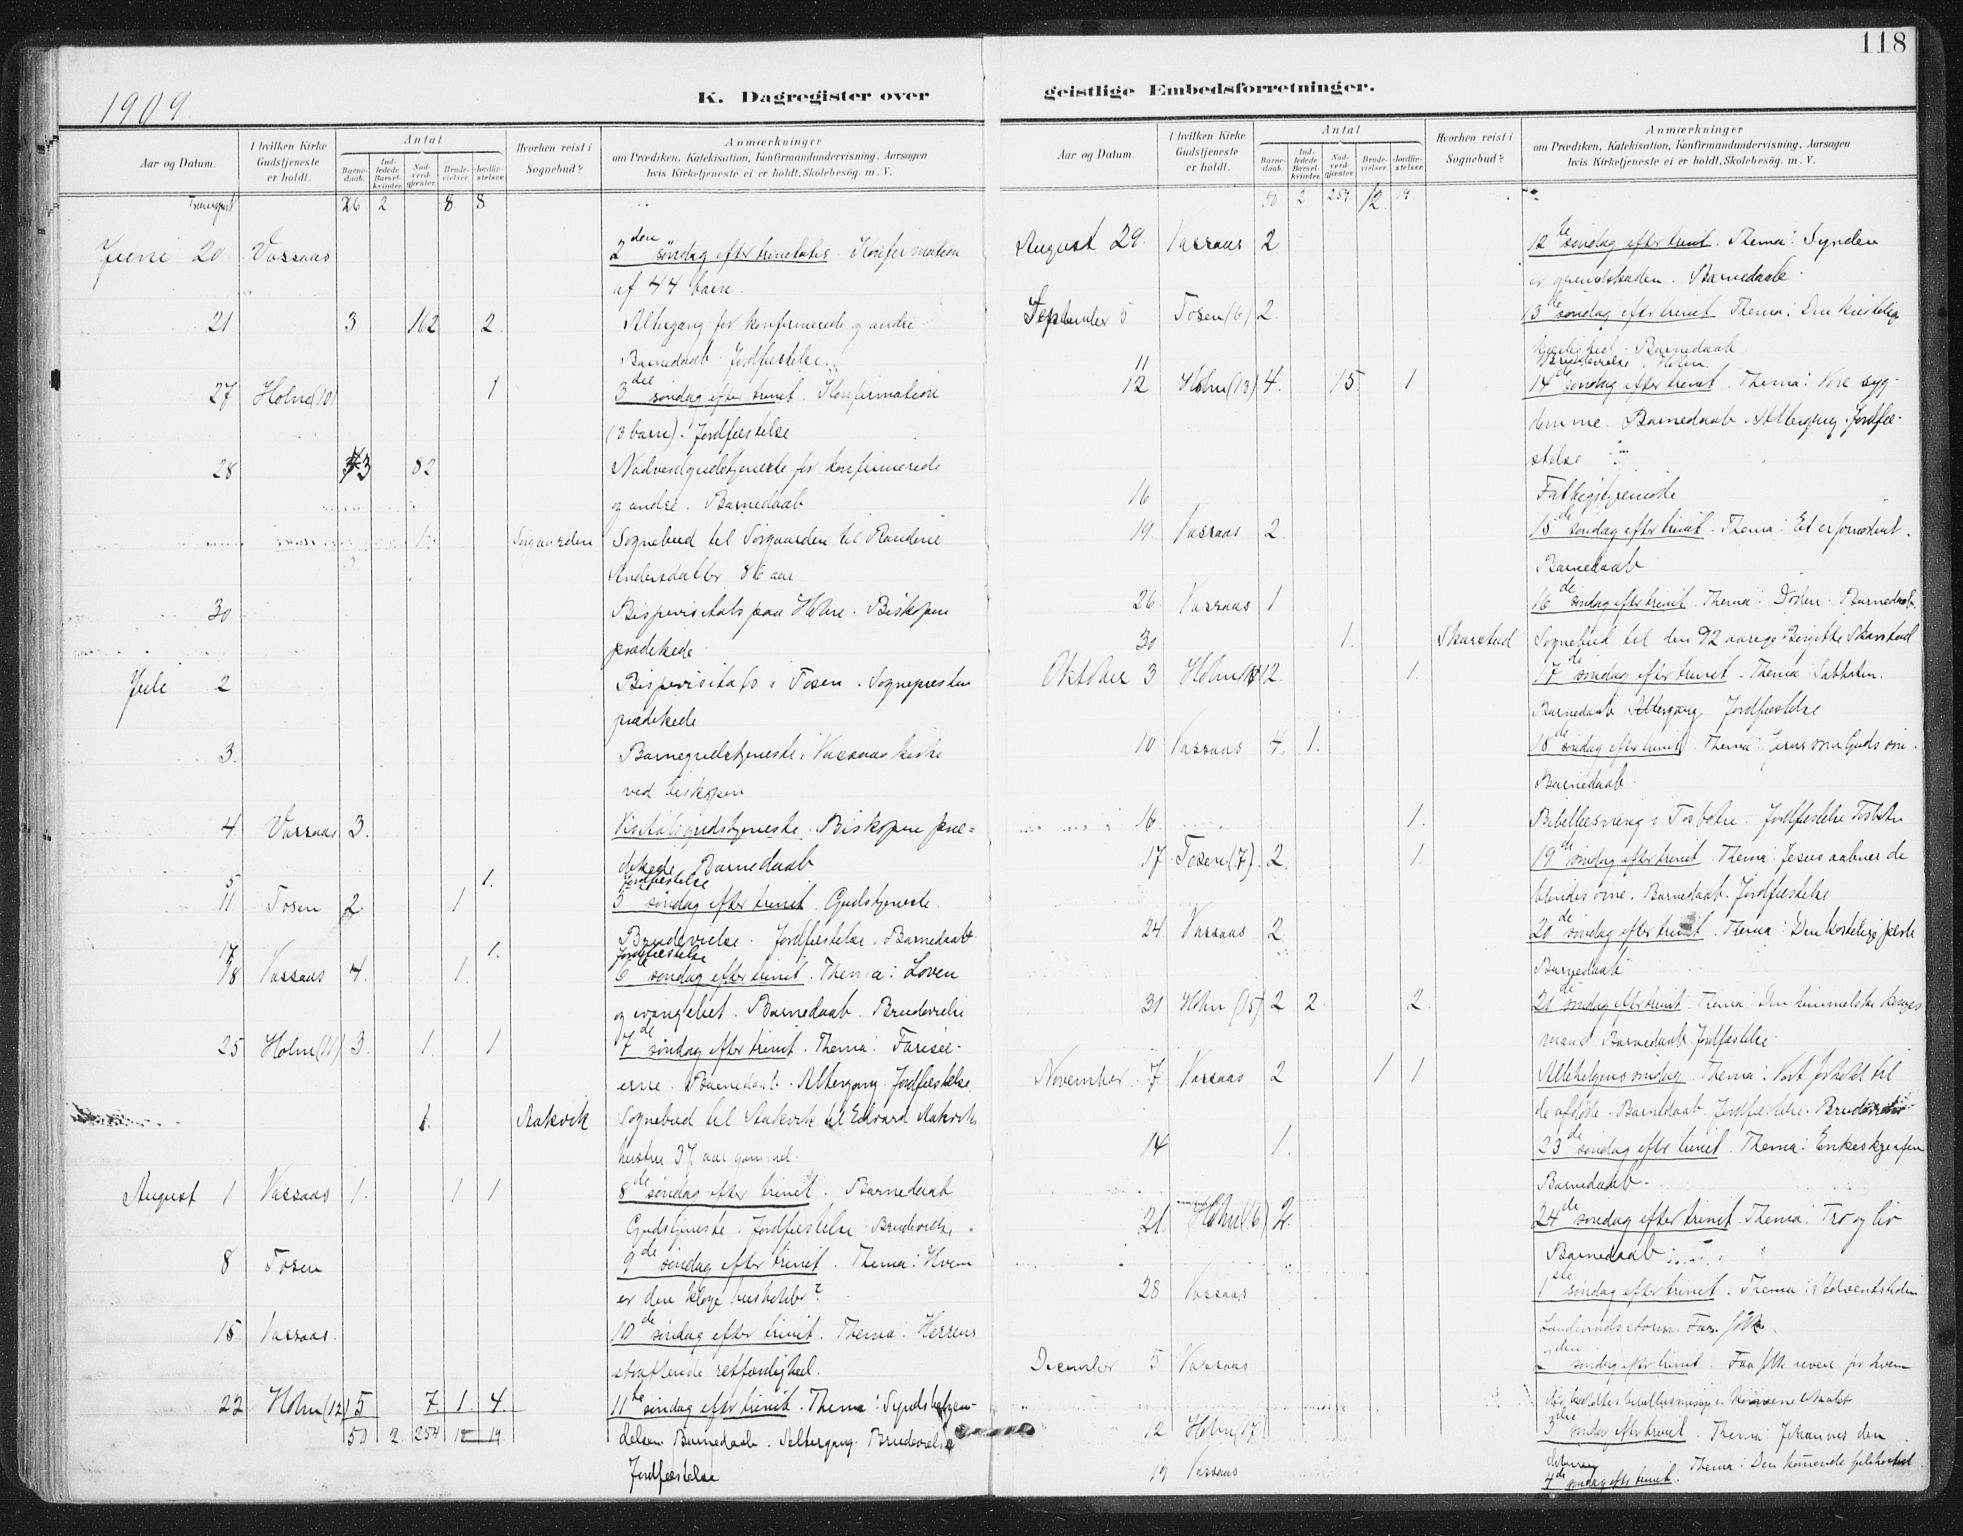 118
1909
K. Dagregister over
Aar og Datum. I hvilken Kirke Gudstjeneste er holdt. Antal Barnedaab. Indledede Barselkvinder. Nadverdgjæster. Brudevielser. Jordfæstelser. Hvorhen reist i Sognebud? Anmærkninger om Prædiken, Katekisation, Konfirmandundervisning, Aarsagen hvis Kirketjeneste ei er holdt, Skolebesøg. m. V.
Transport 26 2 8 8
Juni 20 Vassaas 2den søndag efter trinitatis. Konfirmation
af 44 barn.
21 3 162 2 Altergang for konfirmerede og andre.
Barnedaab. Jordfæstelse.
27 Holm (10) 1 3die søndag efter trinit. Konfirmation
(3 barn). Jordfæstelse
28 3 82 Nadverdgudstjeneste for konfirmerede
og andre. Barnedaab
1 Sørgaarden Sognebud til Sørgaarden til
Andersdatter 86 aar
30 Bispevisitats paa Holm. Biskopen
prædikede
Juli 2 Bispevisitats i Tosen. Sognepresten
prædikede
3. Barnegudstjeneste i Vassaas kirke
ved biskopen
4 Vassaas 3. Visitatsgudstjeneste. Biskopen præ=
dikede Barnedaab
5 1. Jordfæstelse
11 Tosen 2 1 5 søndag efter trinit. Gudstjeneste.
Brudevielse. Jordfæstelse. Barnedaab
17 1. Jordfæstelse
18 Vassaas 4. 1. 6 søndag efter trinit. Thema: Loven
og evangeliet. Barnedaab. Brudevielse
25 Holm (11) 3. 1. 1 7de søndag efter trinit. Thema: Farisæ-
erne. Barnedaab. Altergang. Jordfæstelse
1. Aakvik Sognebud til Aakvik til Edvard Aakviks
hustru 37 aar gammel.
August 1 Vassaas 1. 1 1 8de søndag efter trinit. Barnedaab
Gudstjeneste. Jordfæstelse. Brudevielse
8 Tosen 9de søndag efter trinit. Thema: Hvem
er den kloge husholder?
15. Vassaas. 10de søndag efter trinit. Thema: Herrens
straffende retfærdighed.
22 Holm (12) 5 7 1. 4. 11te søndag efter trinit. Thema: Syndsbekjen-
50 2 254 12 19 delsen Barnedaab. Altergang. Brudevielse
Jordfæstelse
geistlige Embedsforretninger.
Aar og Datum. I hvilken Kirke Gudstjeneste er holdt. Antal Barnedaab. Indledede Barselkvinder. Nadverdgjæster. Brudevielser. Jordfæstelser. Hvorhen reist i Sognebud? Anmærkninger om Prædiken, Katekisation, Konfirmandundervisning, Aarsagen hvis Kirketjeneste ei er holdt, Skolebesøg. m. V.
50 2 254 12. 19.
August 29. Vassaas 2 12te søndag efter trinit. Thema: Synden
er grundskaden. Barnedaab.
September 5 Tosen (6) 2. 13de søndag efter trinit Thema: Den kristelige
kjærlighed. Barnedaab
11 Brudevielse i Holm.
12 Holm (13) 4. 15. 1 14de søndag efter trinit. Thema: Vore syg-
domme. Barnedaab. Altergang. Jordfæ-
stelse
16 Fattigstyremøde
19. Vassaas 2. 15de søndag efter trinit. Thema: Et er fornødent.
Barnedaab
26 Vassaas 1 16de søndag efter trinit. Thema: Døden. Barnedaab.
30 1. Skarstad Sognebud til den 92 aarige Birgitte Skarstad
Oktober 3 Holm 2. 1. 17de søndag efter trinit. Thema: Sabbaten.
Barnedaab Altergang Jordfæstelse
10 Vassaas 4. 1. 18de søndag efter trinit. Thema: Jesus som Guds søn.
Barnedaab.
16. 1. Bibellæsning i Tosbotn. Jordfæstelse Tosbotn
17 Tosen (7). 2. 1. 19de søndag efter trinit. Thema: Jesus aabner de
blindes øine. Barnedaab. Jordfæstelse
24. Vassaas 2. 20de søndag efter trinit. Thema: Den kostelige perle
Barnedaab
31 Holm (15) 2 2. 2. 21de søndag efter trinit. Thema: Den himmelske konges
mand Barnedaab. Jordfæstelse
November. 7 Vassaas 2 1 1 Allehelgens søndag. Thema: Vort forhold til
de afdøde. Barnedaab Jordfæstelse. Brudevielse
14 1. 23de søndag efter trinit. Thema: Enkeskjærven
Barnedaab.
21 Holm (16) 2. 24de søndag efter trinit. Thema: Tro og liv
Barnedaab.
28 Vassaas 1ste søndag efter trinit. Thema: Adventstiden
December 5 Vassaas 2den søndag efter trinit.
12 Holm (17) 3die søndag efter trinit. Thema: Johannes den
19 Vassaas 4de søndag efter trinit. Thema: Den kommende